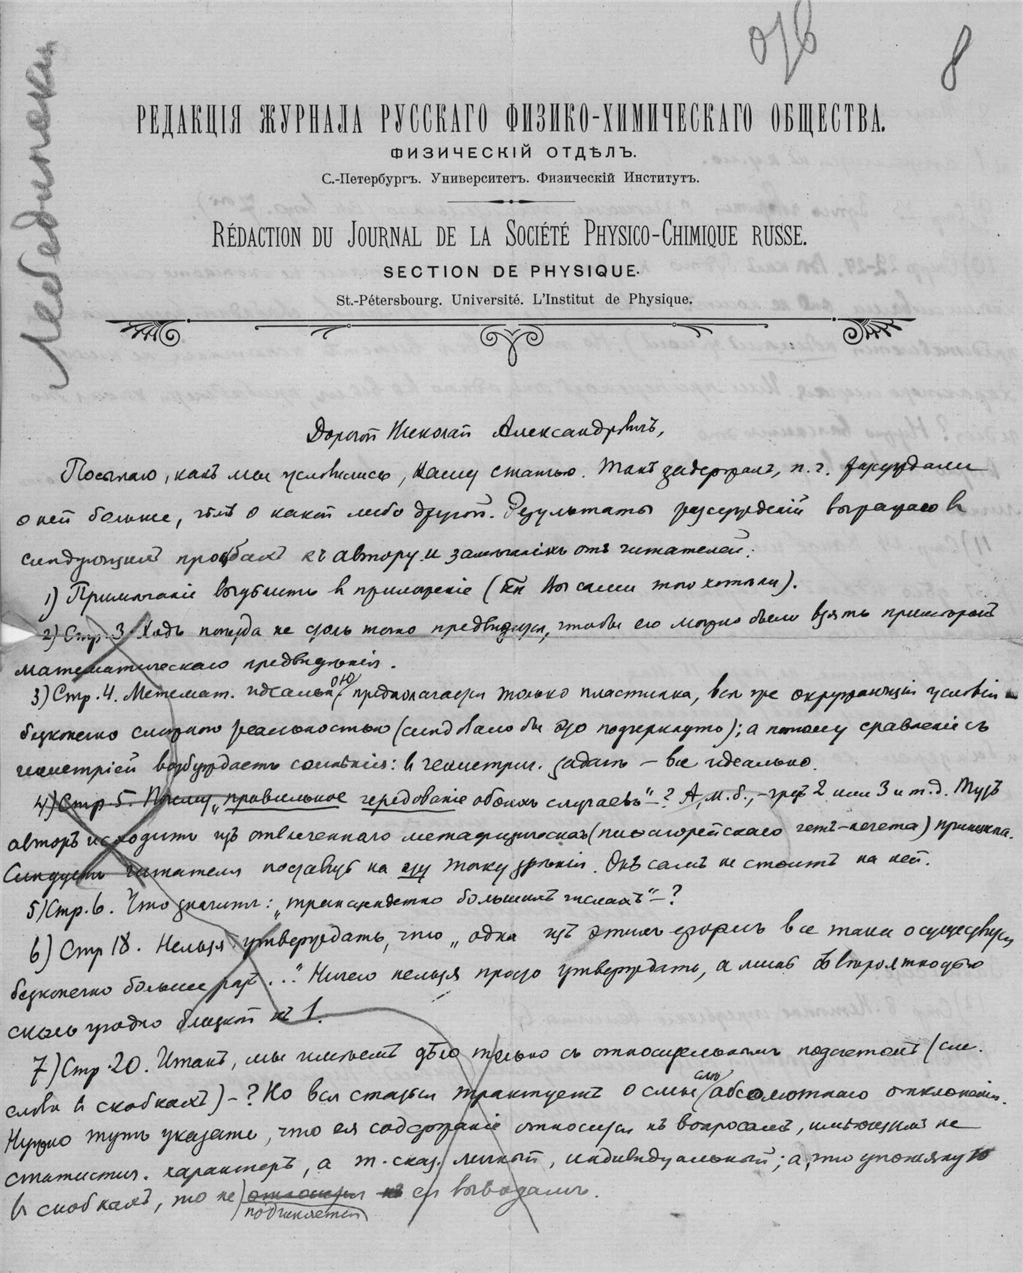 отв
8
Лебединский
РЕДАКЦІЯ ЖУРНАЛА РУССКАГО ФИЗИКО-ХИМИЧЕСКАГО ОБЩЕСТВА.
ФИЗИЧЕСКІЙ ОТДѢЛЪ.
С.-Петербургъ. Университетъ. Физическій Институтъ.
RÉDACTION DU JOURNAL DE LA SOCIÉTÉ PHYSICO-CHIMIQUE RUSSE.
SECTION DE PHYSIQUE.
St.-Pétersbourg. Université. L'Institut de Physique.
Дорогой Николай Александровичъ,
Посылаю, какъ мы условились, Вашу статью. Такъ задержалъ, п. ч. разсуждали
о ней больше, чѣмъ о какой либо другой. Результаты разсужденій выражаю въ
слѣдующихъ просьбахъ къ автору и замѣчаніяхъ отъ читателей:
1) Примѣчаніе углубить въ примѣчаніе (какъ Вы сами того хотѣли).
2) Стр. 3. Ходъ поѣзда не столь точно предвидимъ, чтобы его можно было взять примѣромъ
математическаго предвидѣнія.
3) Стр. 4. Математ. идеальною предполагается только пластинка, вся же окружающія условія
безконечно сложною реальностью (слѣдовало бы это подчеркнуть); а потому сравненіе съ
геометріей возбуждаетъ сомнѣнія: въ геометрич. задачѣ – все идеально.
4) Стр. 5. Почему „правильное чередованіе обоихъ случаевъ“ – ? А, м. б., – чрезъ 2 или 3 и т. д. Тутъ
авторъ исходитъ изъ отвлеченнаго метафизическаго (пиѳагорейскаго четъ-нечета) принципа.
Слѣдуетъ читателя поставить на эту точку зрѣнія. Онъ самъ не стоитъ на ней.
5) Стр. 6. Что значитъ: „трансцедентно большихъ числахъ“ – ?
6) Стр 18. Нельзя утверждать, что „одна изъ этихъ
безконечно большее разъ ...“ Ничего нельзя просто утверждать, а лишь съ вѣроятностью
сколь угодно близкой къ 1.
7) Стр. 20. Итакъ, мы имѣемъ дѣло только съ относительнымъ подсчетомъ (см.
слова въ скобкахъ) – ? Но вся статья трактуетъ о смыслѣ абсолютнаго отклоненія.
Нужно тутъ указать, что ея содержаніе относится къ вопросамъ, имѣющимъ не
статистич. характеръ, а т. сказ. личный, индивидуальный; а, что упомянуто
въ скобкахъ, то не относится къ ея выводамъ.
подчиняется